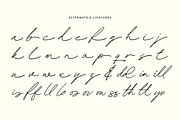 ALTERNATE & LIGATURES
a b c d e f g h i j
k l m n o p q r s t
u v w x y z & dd in ill
is ff ll lo os ov on ss th tt yo